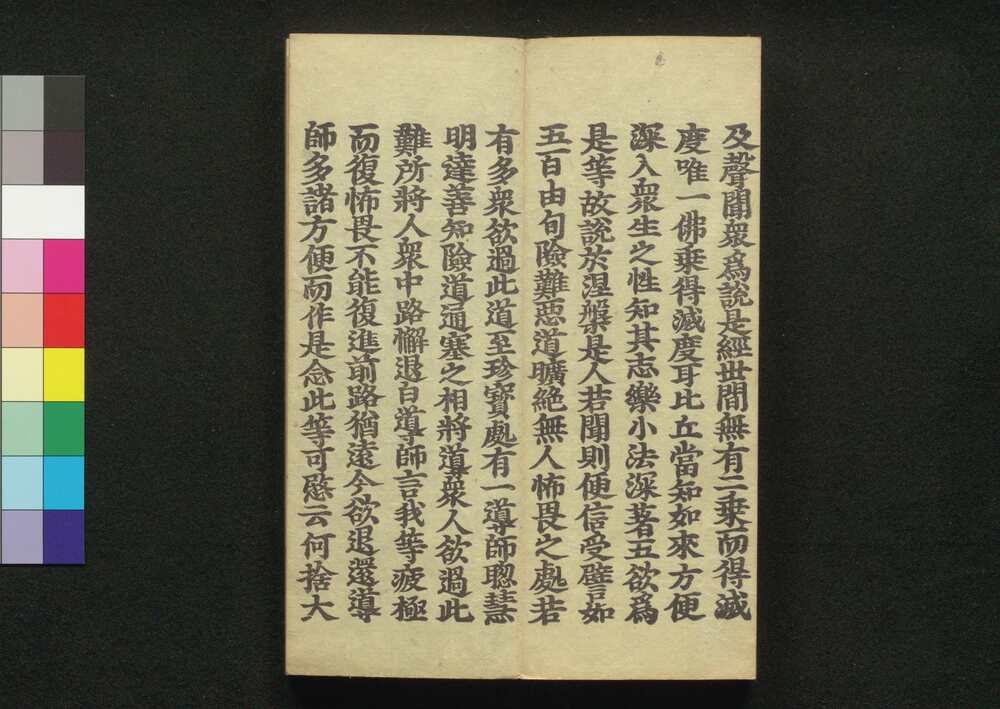 及聲聞衆為說是經世間無有二乘而得滅
度唯一佛乘得滅度耳比丘當知如來方便
深入衆生之性知其志樂小法深著五欲為
是等故說於涅槃是人若聞則便信受譬如
五百由旬險難惡道曠絶無人怖畏之處若
有多衆欲過此道至珍寶處有一導師聰慧
明達善知險道通塞之相將導衆人欲過此
難所將人衆中路懈退白導師言我等疲極
而復怖畏不能復進前路猶遠今欲退還導
師多諸方便而作是念此等可愍云何捨大